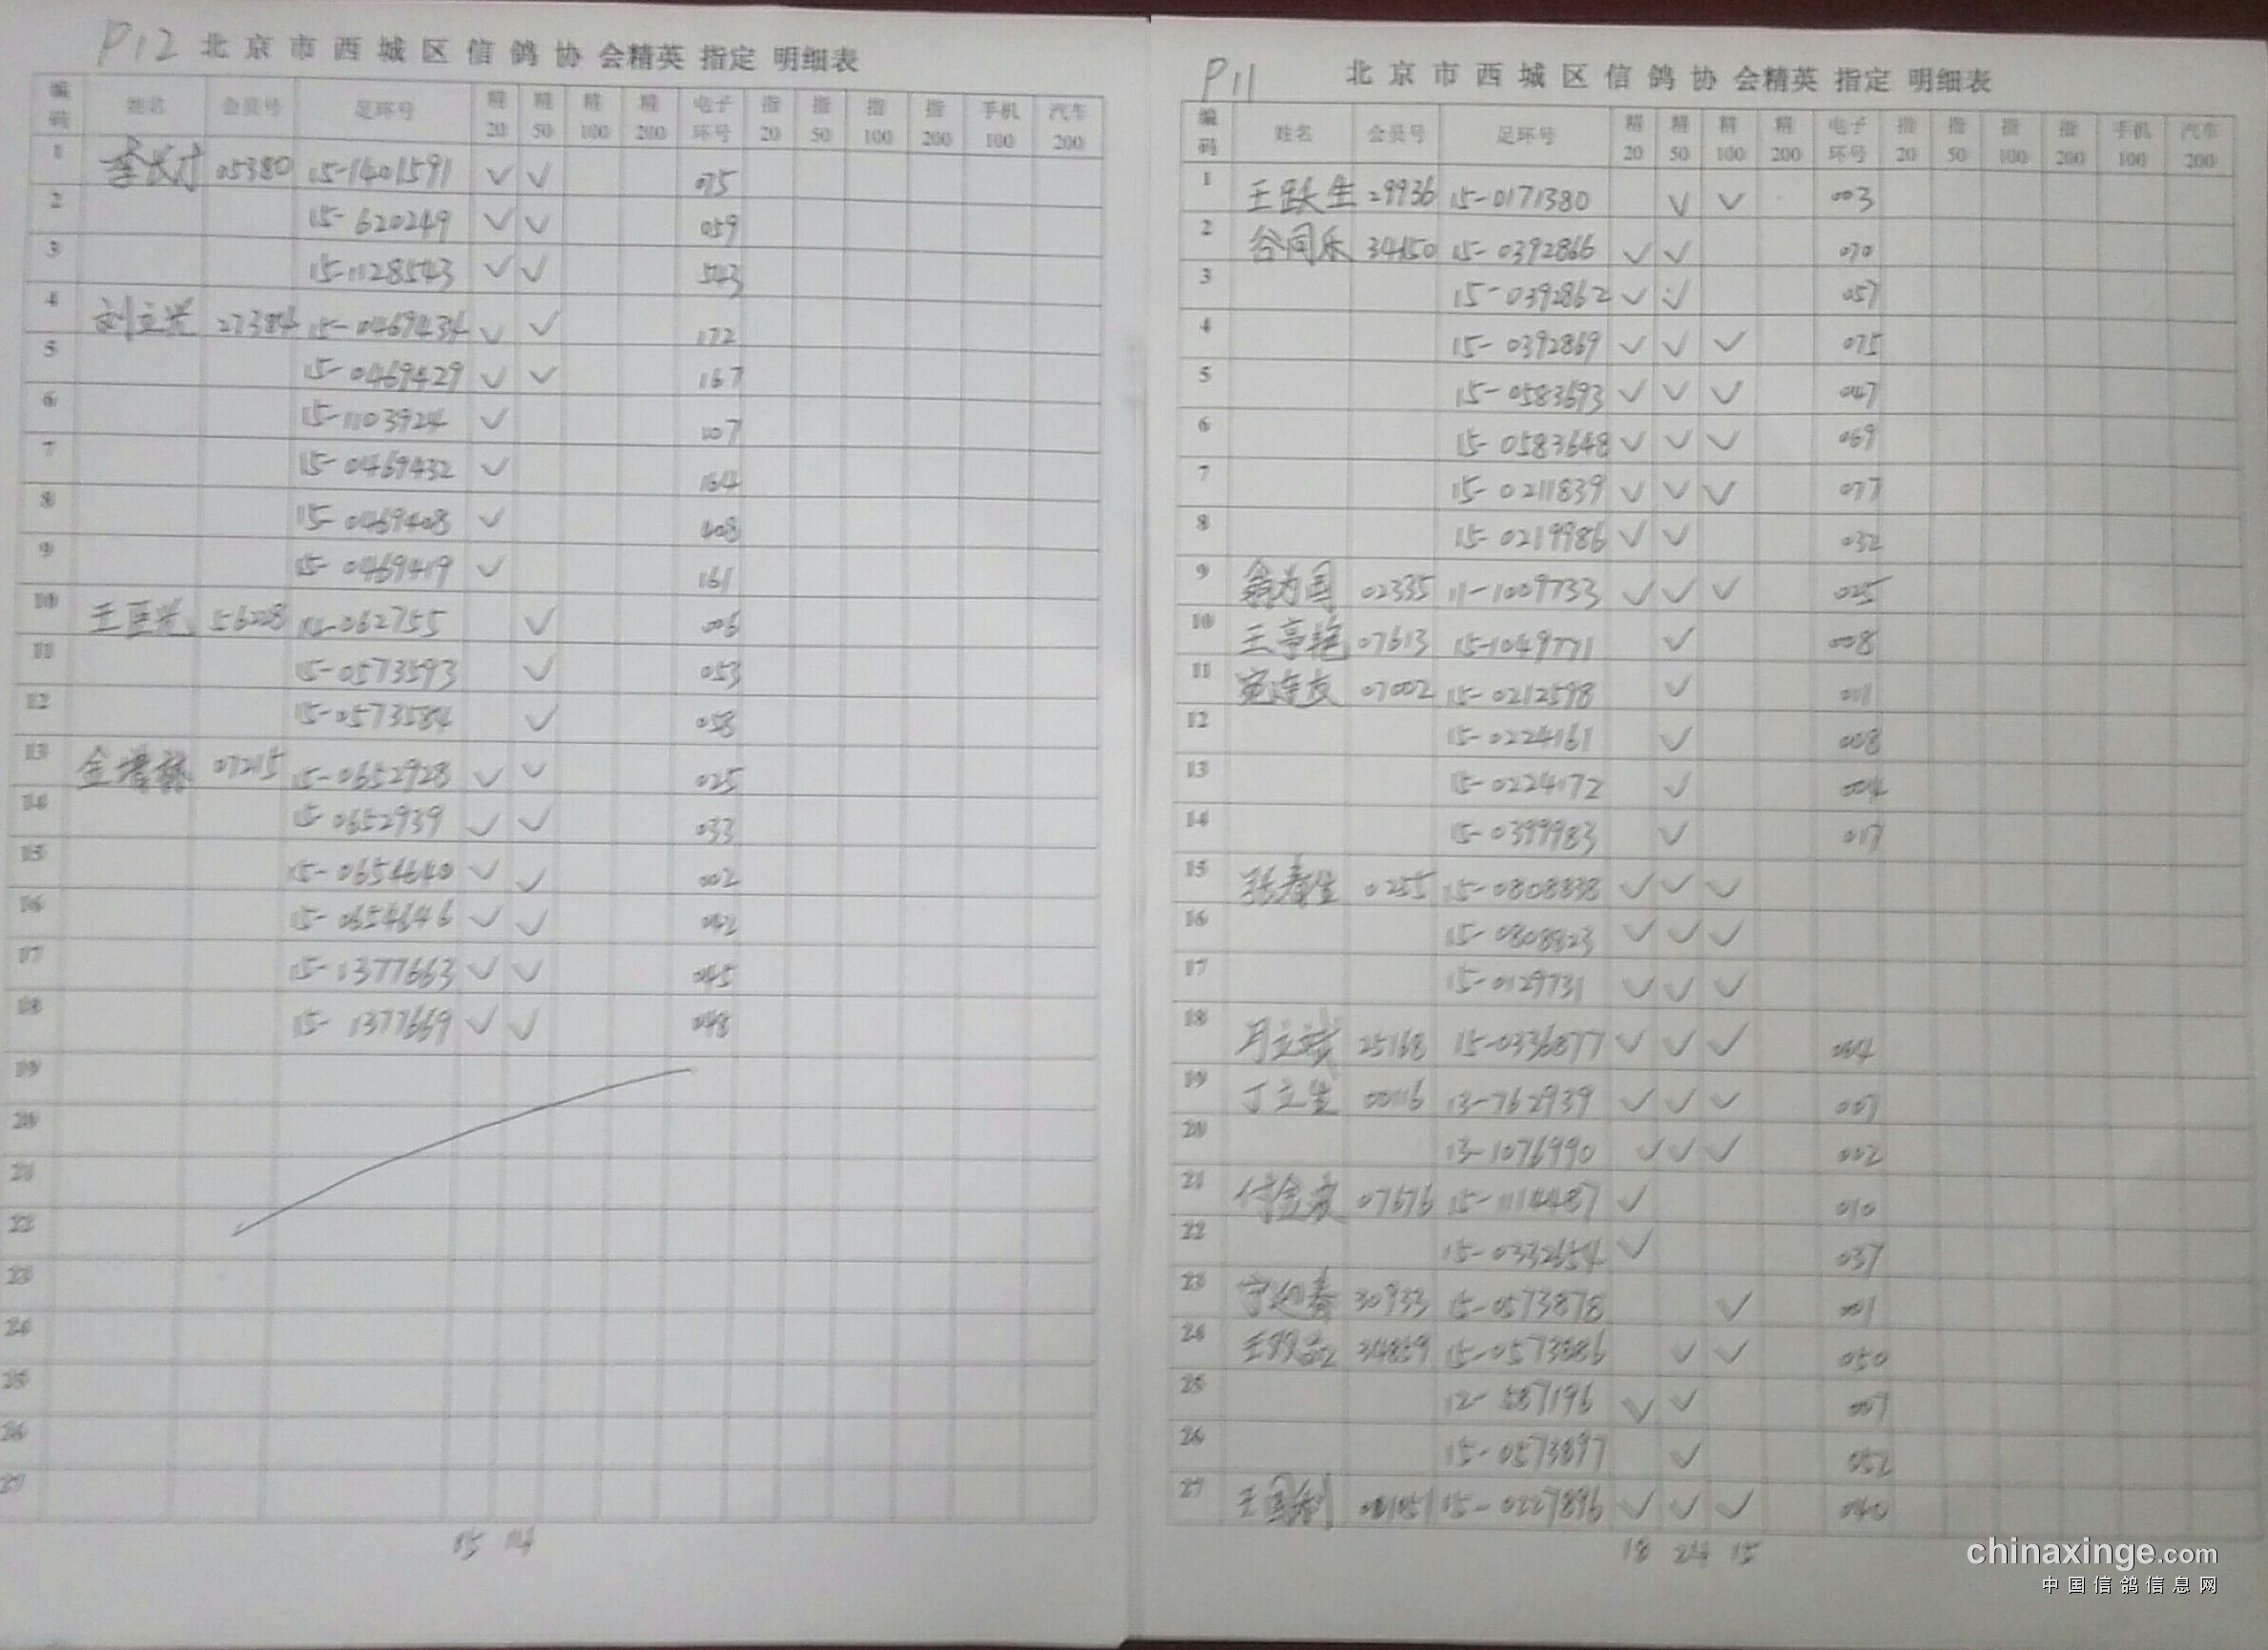 P12 北京市西城区信鸽协会精英 指定 明细表
编码 姓名 会员号 足环号 精20 精50 精100 精200 电子环号 指20 指50 指100 指200 手机100 汽车200
1 李长才 05380 15-1401591 ✓ ✓ 075
2 15-620249 ✓ ✓ 059
3 15-1128543 ✓ ✓ 543
4 刘立兴 27384 15-0469434 ✓ ✓ 172
5 15-0469429 ✓ ✓ 167
6 15-1103924 ✓ 107
7 15-0469432 ✓ 164
8 15-0469408 ✓ 408
9 15-0469419 ✓ 161
10 王巨兴 56228 062755 ✓ 006
11 15-0573593 ✓ 053
12 15-0573584 ✓ 058
13 07215 15-0652928 ✓ ✓ 025
14 15-0652939 ✓ ✓ 033
15 15-0654640 ✓ ✓ 002
16 15-0654646 ✓ ✓ 042
17 15-1377663 ✓ ✓ 045
18 15-1377669 ✓ ✓ 048
19
20
21
22
23
24
25
26
27
15 14
P11 北京市西城区信鸽协会精英 指定 明细表
编码 姓名 会员号 足环号 精20 精50 精100 精200 电子环号 指20 指50 指100 指200 手机100 汽车200
1 王跃生 29936 15-0171380 ✓ ✓ 003
2 谷同乐 34150 15-0392866 ✓ ✓ 070
3 15-0392862 ✓ ✓ 057
4 15-0392869 ✓ ✓ ✓ 075
5 15-0583693 ✓ ✓ ✓ 047
6 15-0583648 ✓ ✓ ✓ 069
7 15-0211839 ✓ ✓ ✓ 077
8 15-0219986 ✓ ✓ 032
9 翁为国 02335 11-1009733 ✓ ✓ ✓ 025
10 王亭艳 07613 15-1049771 ✓ 008
11 07002 15-0212598 ✓ 011
12 15-0224161 ✓ 008
13 15-0224172 ✓ 004
14 15-0399983 ✓ 017
15 张春生 0255 15-0808838 ✓ ✓ ✓
16 15-0808823 ✓ ✓ ✓
17 15-0129731 ✓ ✓ ✓
18 25168 15-0336877 ✓ ✓ ✓ 004
19 丁立生 00116 13-762939 ✓ ✓ ✓ 007
20 13-1076990 ✓ ✓ ✓ 002
21 07676 15-1114487 ✓ 010
22 15-0332654 ✓ 037
23 宁迎春 30933 15-0573878 ✓ 001
24 34859 15-0573886 ✓ ✓ 050
25 12-587196 ✓ ✓ 007
26 15-0573897 ✓ 052
27 王国利 15-0227896 ✓ ✓ ✓ 040
18 24 15
chinaxinge.com
中国信鸽信息网